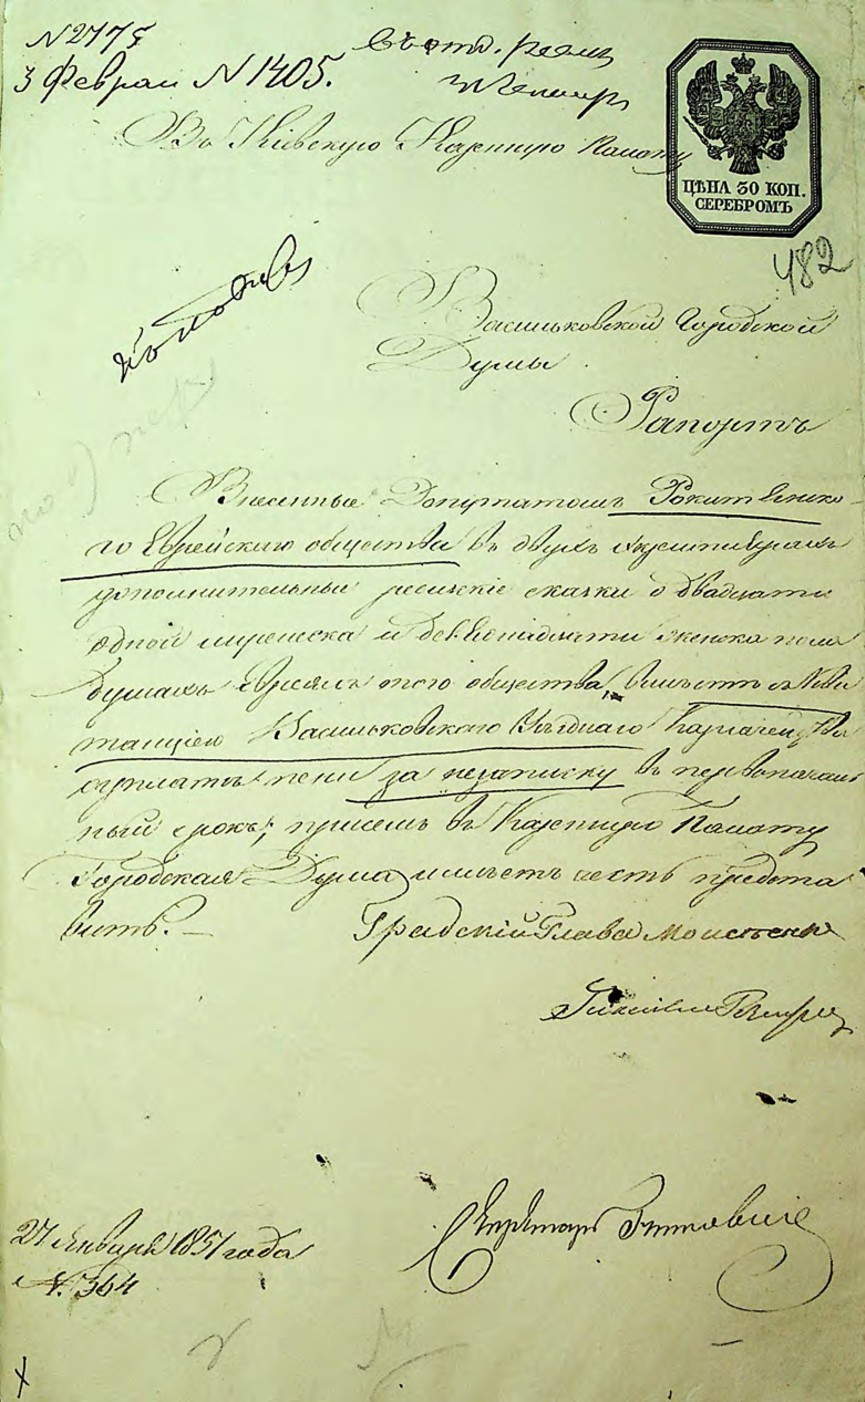 N 2175
3 Феврал N 1405.
Въ отд.
Въ Кіевскую Казенную Палату
ЦѢНА 30 КОП.
СЕРЕБРОМЪ
482
Васильковской Городской
Думы
Рапортъ
Внесенные Депутатомъ Рокитянско-
го Еврейскаго общества въ двухъ экземплярахъ
дополнительныя ревизкіе сказки о двадцати
одной мужеска и девятнадцати женска пола
душахъ Евреяхъ того общества, вмѣстѣ съ Кви
танціею Васильковскаго Уѣзднаго Казначейства
пени за незаписку въ первоначаль
ный срокъ; при семъ въ Казенную Палату
Городская Дума имѣетъ честь предста
вить.
Градскій Глава Моисѣенко
Гласный
Секретарь
27 Января 1851 года
N. 364